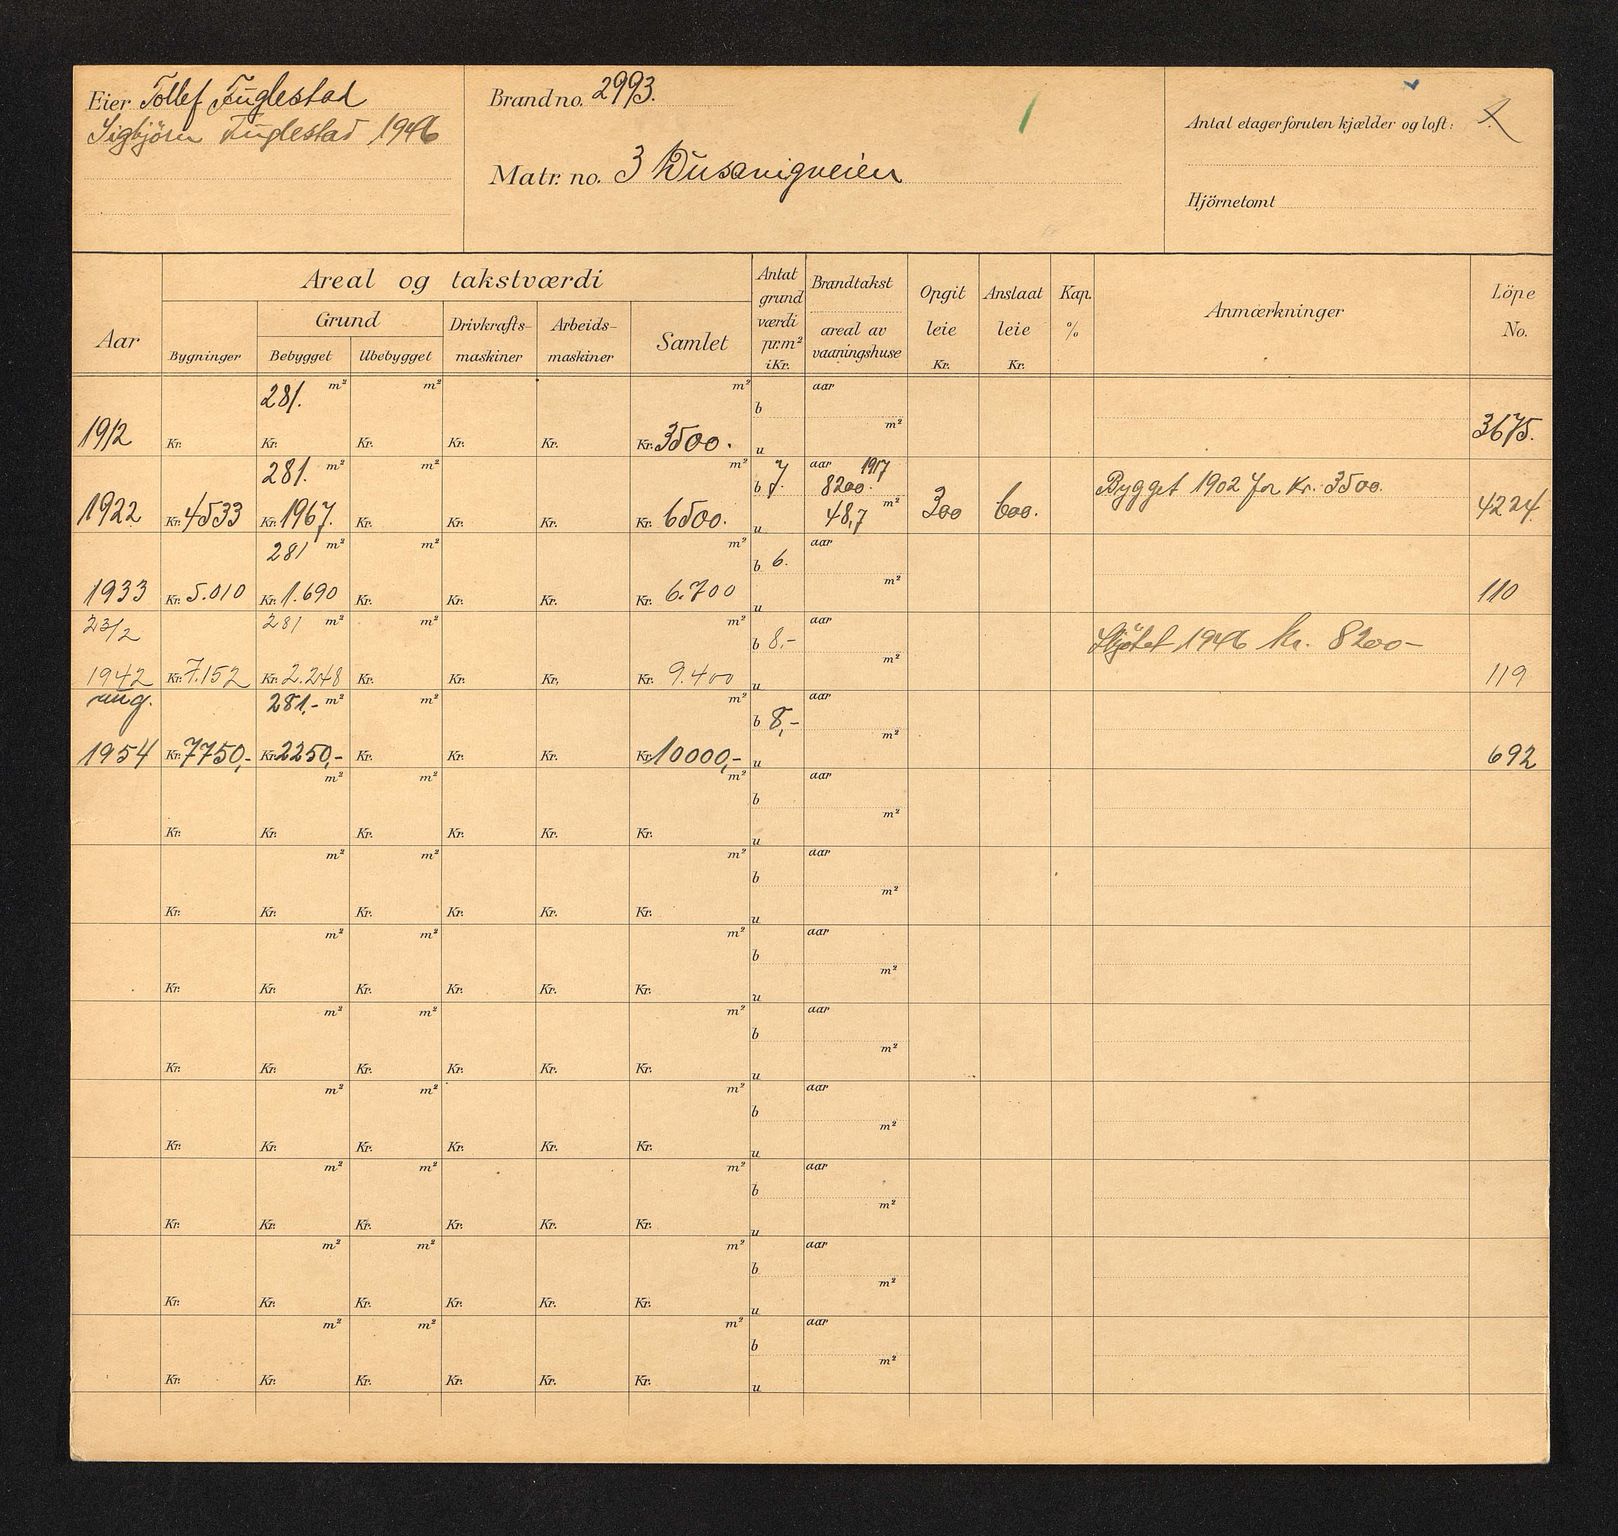 Eier Tollef Fuglestad
Sigbjörn Fuglestad 1946
Brand no. 2993.
Matr. no. 3 Dusavigveien
Antal etager foruten kjælder og loft:
Hjörnetomt
Aar
Areal og takstværdi
Bygninger
Grund
Bebygget
Ubebygget
Drivkrafts-
maskiner
Arbeids-
maskiner
Samlet
Antat
grund
værdi
pr. m²
i Kr.
Brandtakst
areal av
vaaningshuse
Opgit
leie
Kr.
Anslaat
leie
Kr.
Kap.
%
Anmærkninger
Löpe
No.
281. m² m² m² aar
b
m²
1912 Kr. Kr. Kr. Kr. Kr. Kr. 3500. u 3675.
281. m² m² m² b 7. aar 1917
8200. Bygget 1902 for Kr. 3500.
1922 Kr. 4533 Kr. 1967. Kr. Kr. Kr. Kr. 6500. u 48,7 m² 300 600. 4224.
281 m² m² m² b 6. aar
m²
1933 Kr. 5.010 Kr. 1.690 Kr. Kr. Kr. Kr. 6.700 u 110
23/2 281 m² m² m² b 8,- aar
Skjøtet 1946 kr. 8200-
m²
1942 Kr. 7.152 Kr. 2.248 Kr. Kr. Kr. Kr. 9.400 u 119
aug. 281,- m² m² m² b 8,- aar
m²
1954 Kr. 7750,- Kr. 2250,- Kr. Kr. Kr. Kr. 10000,- u 692
m² m² m² aar
b
m²
Kr. Kr. Kr. Kr. Kr. Kr. u
m² m² m² aar
b
m²
Kr. Kr. Kr. Kr. Kr. Kr. u
m² m² m² aar
b
m²
Kr. Kr. Kr. Kr. Kr. Kr. u
m² m² m² aar
b
m²
Kr. Kr. Kr. Kr. Kr. Kr. u
m² m² m² aar
b
m²
Kr. Kr. Kr. Kr. Kr. Kr. u
m² m² m² aar
b
m²
Kr. Kr. Kr. Kr. Kr. Kr. u
m² m² m² aar
b
m²
Kr. Kr. Kr. Kr. Kr. Kr. u
m² m² m² aar
b
m²
Kr. Kr. Kr. Kr. Kr. Kr. u